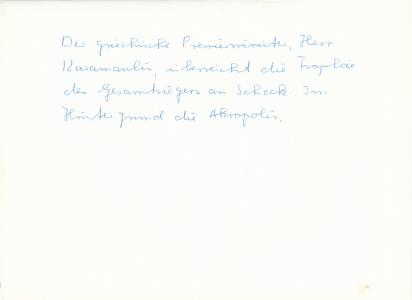 Der griechische Premierminister, Herr
Karamanlis, überreicht die Trophäe
des Gesamtsiegers an Schock. Im
Hintergrund die Akropolis.